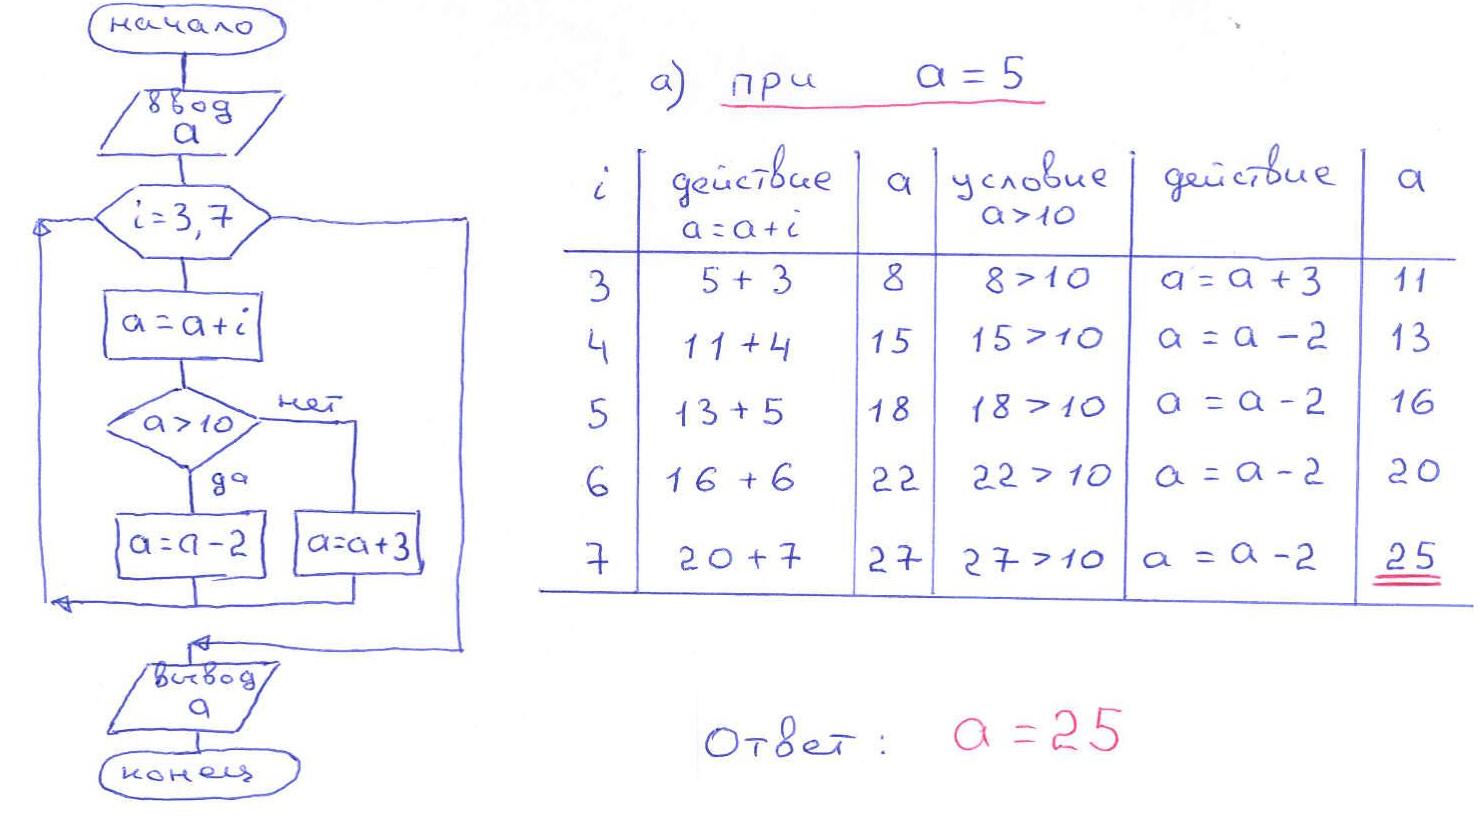 начало
ввод
a
i=3,7
a=a+i
a>10
нет
да
a=a-2
a=a+3
вывод
a
конец
а) при a=5
i действие a условие действие a
a=a+i a>10
3 5+3 8 8>10 a=a+3 11
4 11+4 15 15>10 a=a-2 13
5 13+5 18 18>10 a=a-2 16
6 16+6 22 22>10 a=a-2 20
7 20+7 27 27>10 a=a-2 25
Ответ: a=25